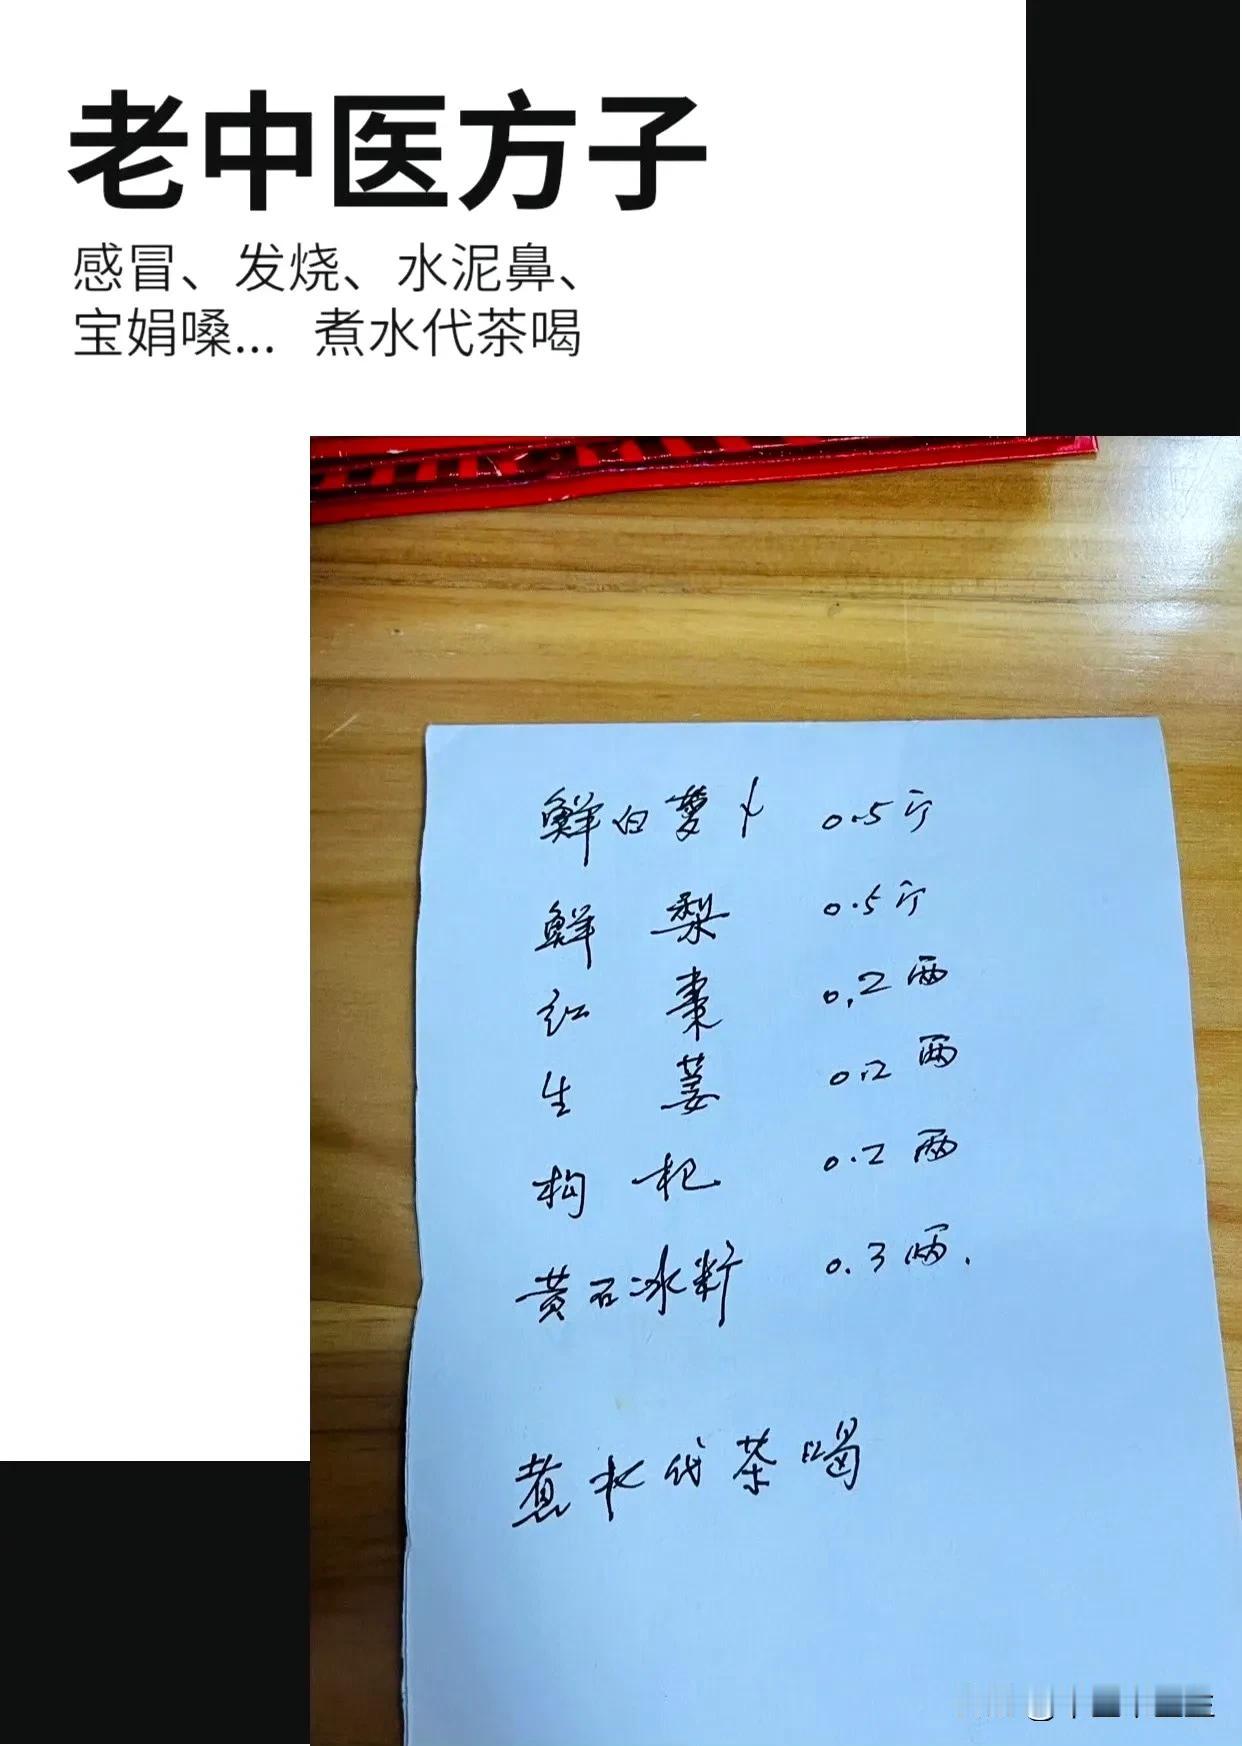 老中医方子
感冒、发烧、水泥鼻、
宝娟嗓... 煮水代茶喝
鲜白萝卜 0.5斤
鲜梨 0.5斤
红枣 0.2两
生姜 0.2两
枸杞 0.2两
黄石冰 0.3两.
煮水代茶喝